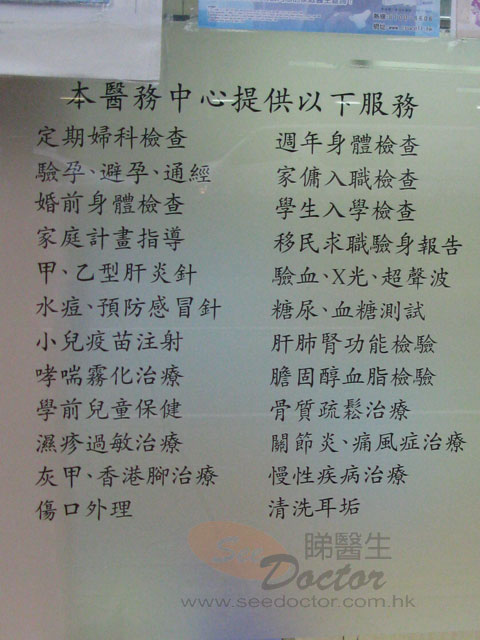 本醫務中心提供以下服務
定期婦科檢查
驗孕、避孕、通經
婚前身體檢查
家庭計畫指導
甲、乙型肝炎針
水痘、預防感冒針
小兒疫苗注射
哮喘霧化治療
學前兒童保健
濕疹過敏治療
灰甲、香港腳治療
傷口外理
週年身體檢查
家傭入職檢查
學生入學檢查
移民求職驗身報告
驗血、X光、超聲波
糖尿、血糖測試
肝肺腎功能檢驗
膽固醇血脂檢驗
骨質疏鬆治療
關節炎、痛風症治療
慢性疾病治療
清洗耳垢
See Doctor
睇醫生
www.seedoctor.com.hk